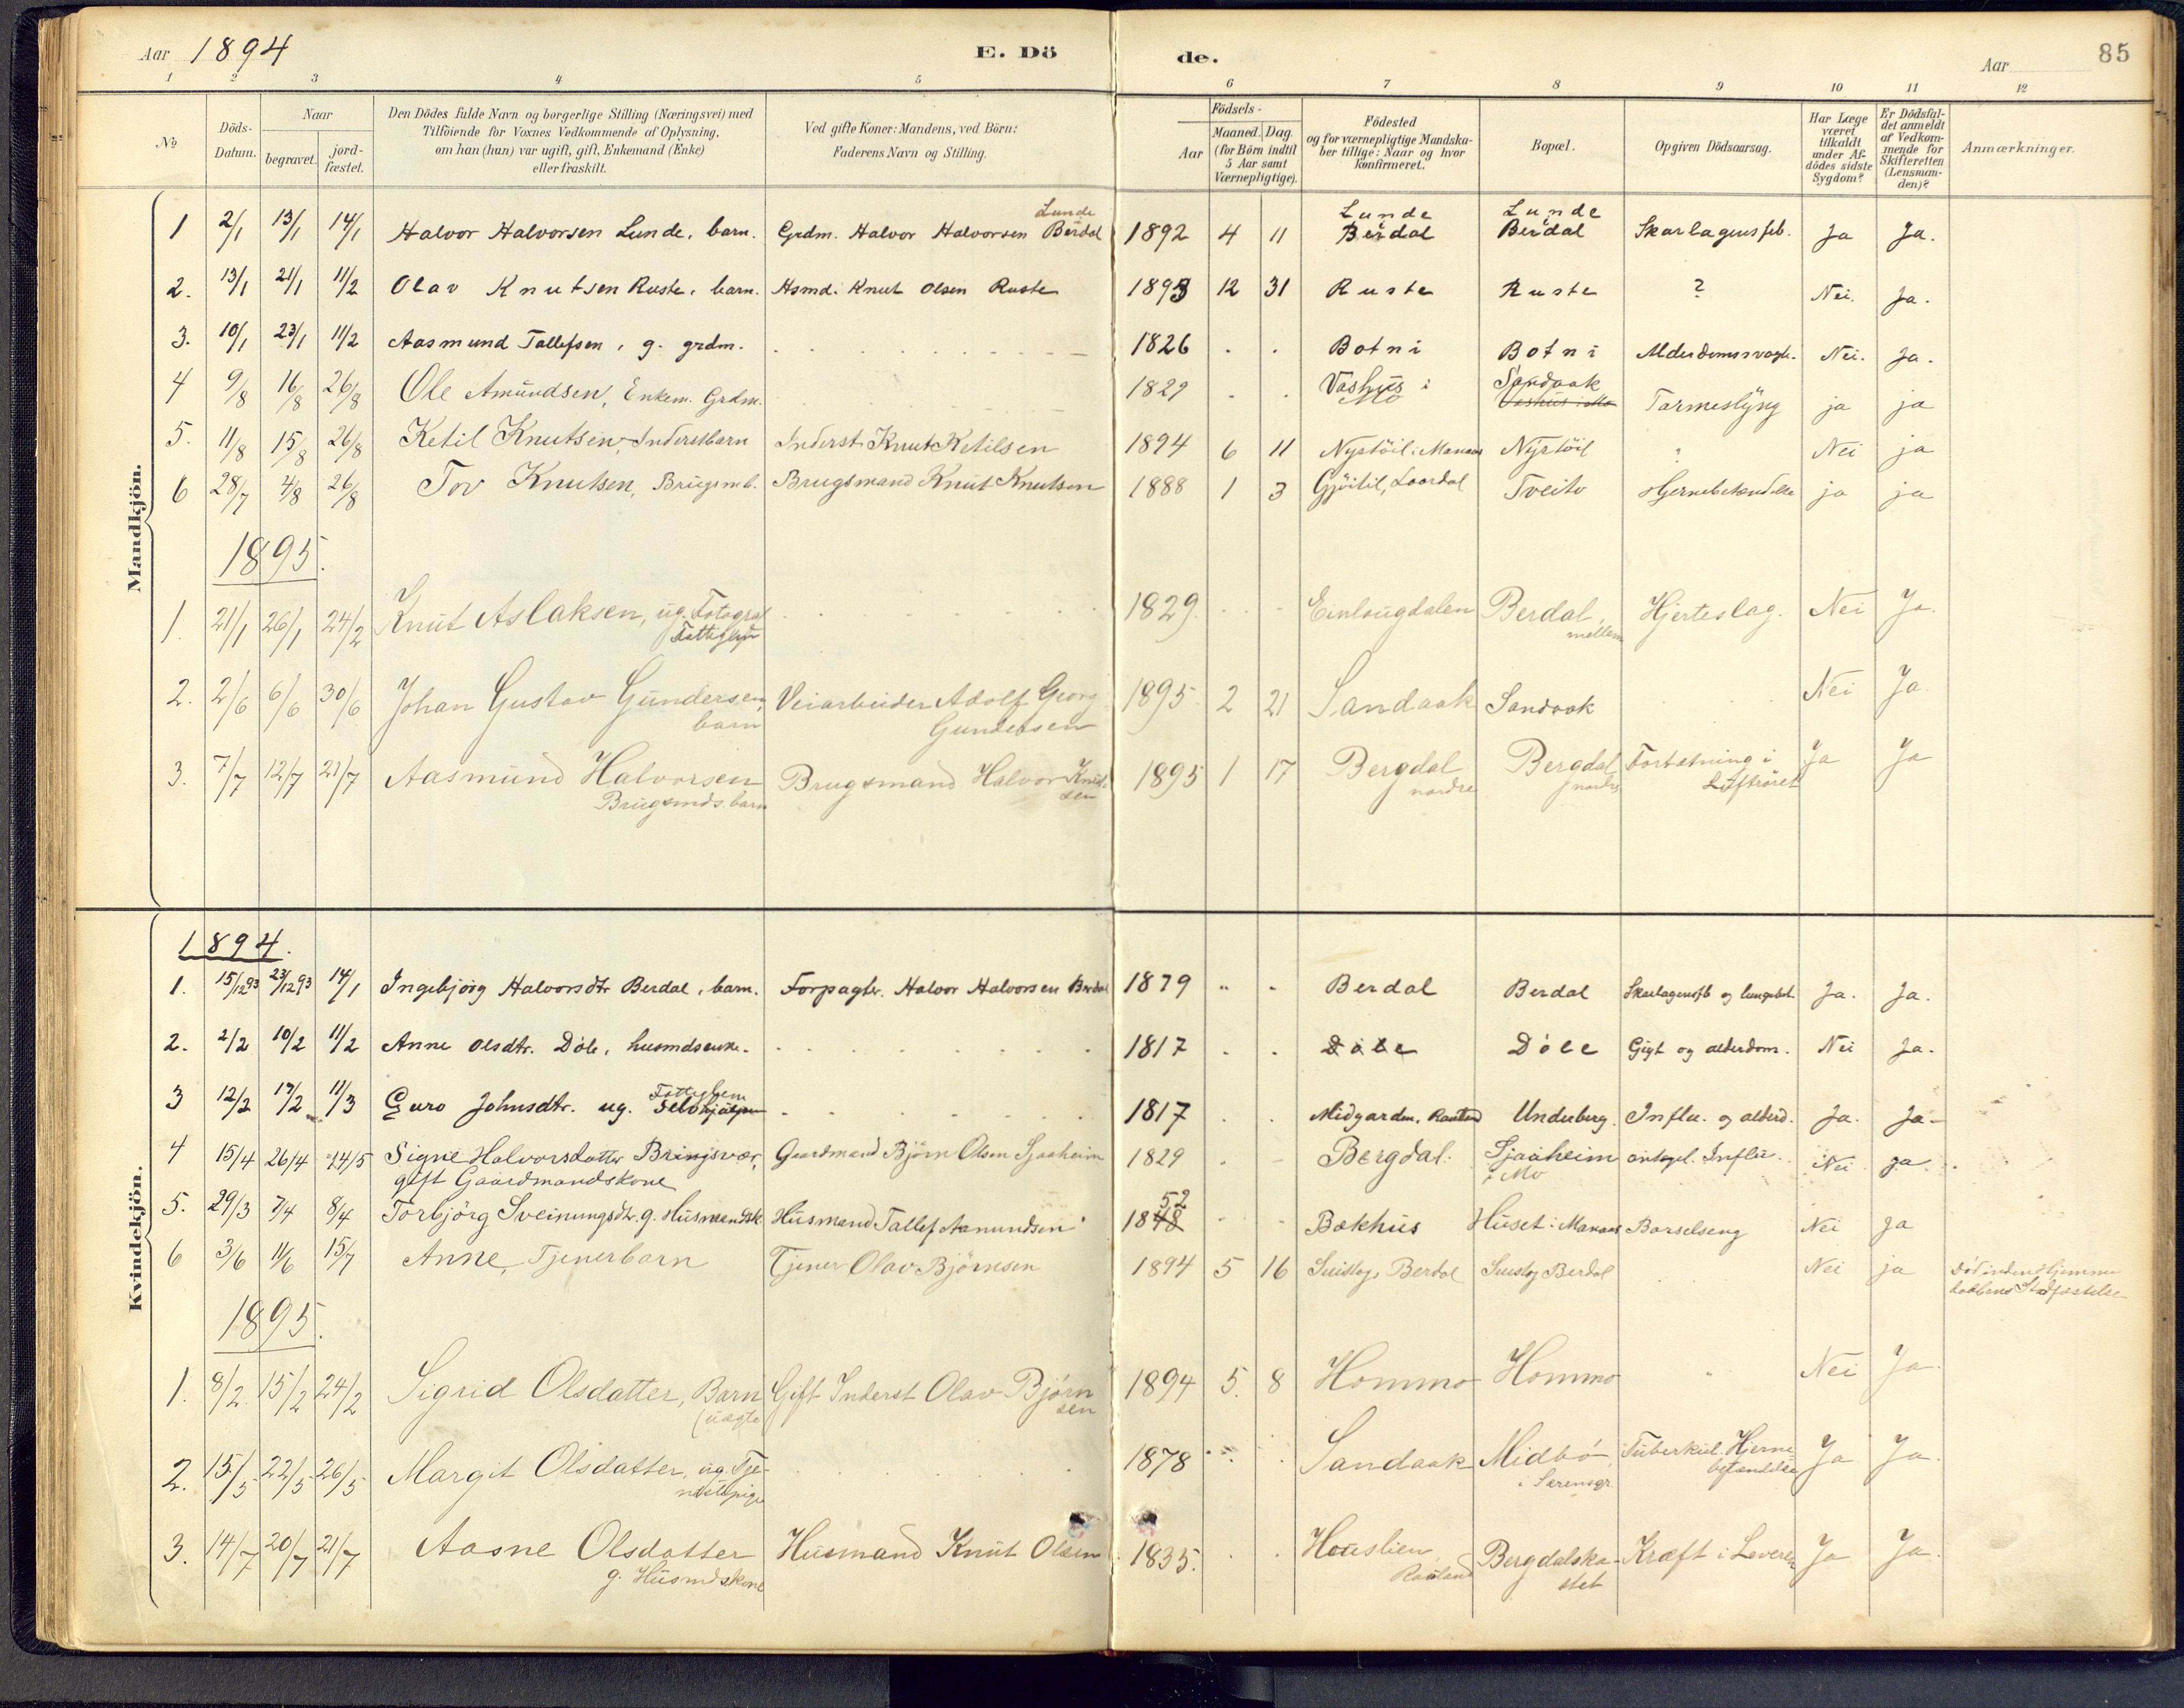 Aar 1894 E. Dö de. Aar 85
1 2 3 4 5 6 7 8 9 10 11 12
No
Döds-Datum.
Naar
begravet.
jord-fæstet.
Den Dödes fulde Navn og borgerlige Stilling (Næringsvei) med
Tilföiende for Voxnes Vedkommende af Oplysning,
om han (hun) var ugift, gift, Enkemand (Enke)
eller fraskilt.
Ved gifte Koner: Mandens, ved Börn:
Faderens Navn og Stilling.
Aar
Födsels-
Maaned. Dag.
(for Börn indtil
5 Aar samt
Værnepligtige).
Födested
og for værnepligtige Mandska-
ber tillige: Naar og hvor
konfirmeret.
Bopæl.
Opgiven Dödsaarsag.
Har Læge
været
tilkaldt
under Af-
dödes sidste
Sygdom?
Er Dödsfal-
det anmeldt
af Vedkom-
mende for
Skifteretten
(Lensman-
den)?
Anmærkninger.
Mandkjön.
Lunde Lunde Lunde
1 2/1 13/1 14/1 Halvor Halvorsen Lunde, barn. Grdm. Halvor Halvorsen Berdal 1892 4 11 Berdal Berdal Skarlagensfeb. Ja Ja.
2. 13/1 21/1 11/2 Olav Knutsen Ruste, barn. Hsmd. Knut Olsen Ruste 1893 12 31 Ruste Ruste ? Nei. Ja.
3. 10/1 23/1 11/2 Aasmund Tallefsen, g. grdm. 1826 Botni Botni Alderdomssvagh. Nei. Ja.
4 9/8 16/8 26/8 Ole Amundsen, Enkem. Grdm. 1829 Vashus i Mo Sandaak Vashus i Mo Tarmeslyng ja ja
5. 11/8 15/8 26/8 Ketil Knutsen, Inderstbarn Inderst Knut Ketilsen 1894 6 11 Nystöil i Manaas Nystöil ? Nei ja
6 28/7 4/8 26/8 Tov Knutsen, Brugsmb. Brugsmand Knut Knutsen 1888 1 3 Gjöitil, Laardal Tveito Hjernebetændelse ja ja
1895.
1. 21/1 26/1 24/2 Knut Aslaksen, ug. Fotograf 1829. Berdal, Hjerteslag. Nei Ja.
mellem
2. 2/6 6/6 30/6 Johan Gustav Gundersen, Veiarbeider Adolf Georg 1895 2 21 Sandaak Sandaak Nei Ja
barn Gundersen
3. 7/7 12/7 21/7 Aasmund Halvorsen Brugsmand Halvor Knut- 1895 1 17 Bergdal Bergdal Fortætning i Ja Ja
Brugsmds. barn sen nordre nordre Luftröret
Kvindekjön.
1894.
1. 15/12 93 23/12 93 14/1 Ingebjörg Halvorsdtr Berdal, barn. Forpagtr. Halvor Halvorsen Berdal 1879 Berdal Berdal Skarlagensfb og lungebet. Ja. Ja.
2. 2/2 10/2 11/2 Anne Olsdtr. Döle, husmdsenke. 1817 Döle Döle Gigt og alderdom. Nei Ja.
3 12/2 17/2 11/3 Guro Johnsdtr. ug. Fattiglem 1817 Midgarden, Rauland Underberg. Influ. og alderd. Ja. Ja
4 15/4 26/4 14/5 Signe Halvorsdatter Bringsvær, Gaardmand Björn Olsen Sjaaheim 1829 Bergdal. Sjaaheim antagel. Influ. Nei ja
gift Gaardmandskone i Mo
5. 29/3 7/4 8/4 Torbjörg Sveinungsdtr. g. Husmandsk Husmand Tallef Aamundsen 1848 52 Bakhus Huset i Manaas Barselseng Nei ja
6 3/6 11/6 15/7 Anne, Tjenerbarn Tjener Olav Björnsen 1894 5 16 Suistog, Berdal Suistog Berdal Nei ja Död inden Hjemme
daabens Stadfæstelse
1895.
1. 8/2 15/2 24/2 Sigrid Olsdatter, Barn Gift Inderst Olav Björn 1894 5. 8 Hommo Hommo " Nei Ja
(uægte sen
2. 15/5 22/5 26/5 Margit Olsdatter, ug. Tje- 1878 Sandaak Midbö Tuberkul. Hjerne Ja Ja.
nestepige betændelse
3. 14/7 20/7 21/7 Aasne Olsdatter Husmand Knut Olsen 1835. Houslien Bergdalska- Kræft i Leveren Ja Ja.
g. Husmdskone Rauland stet